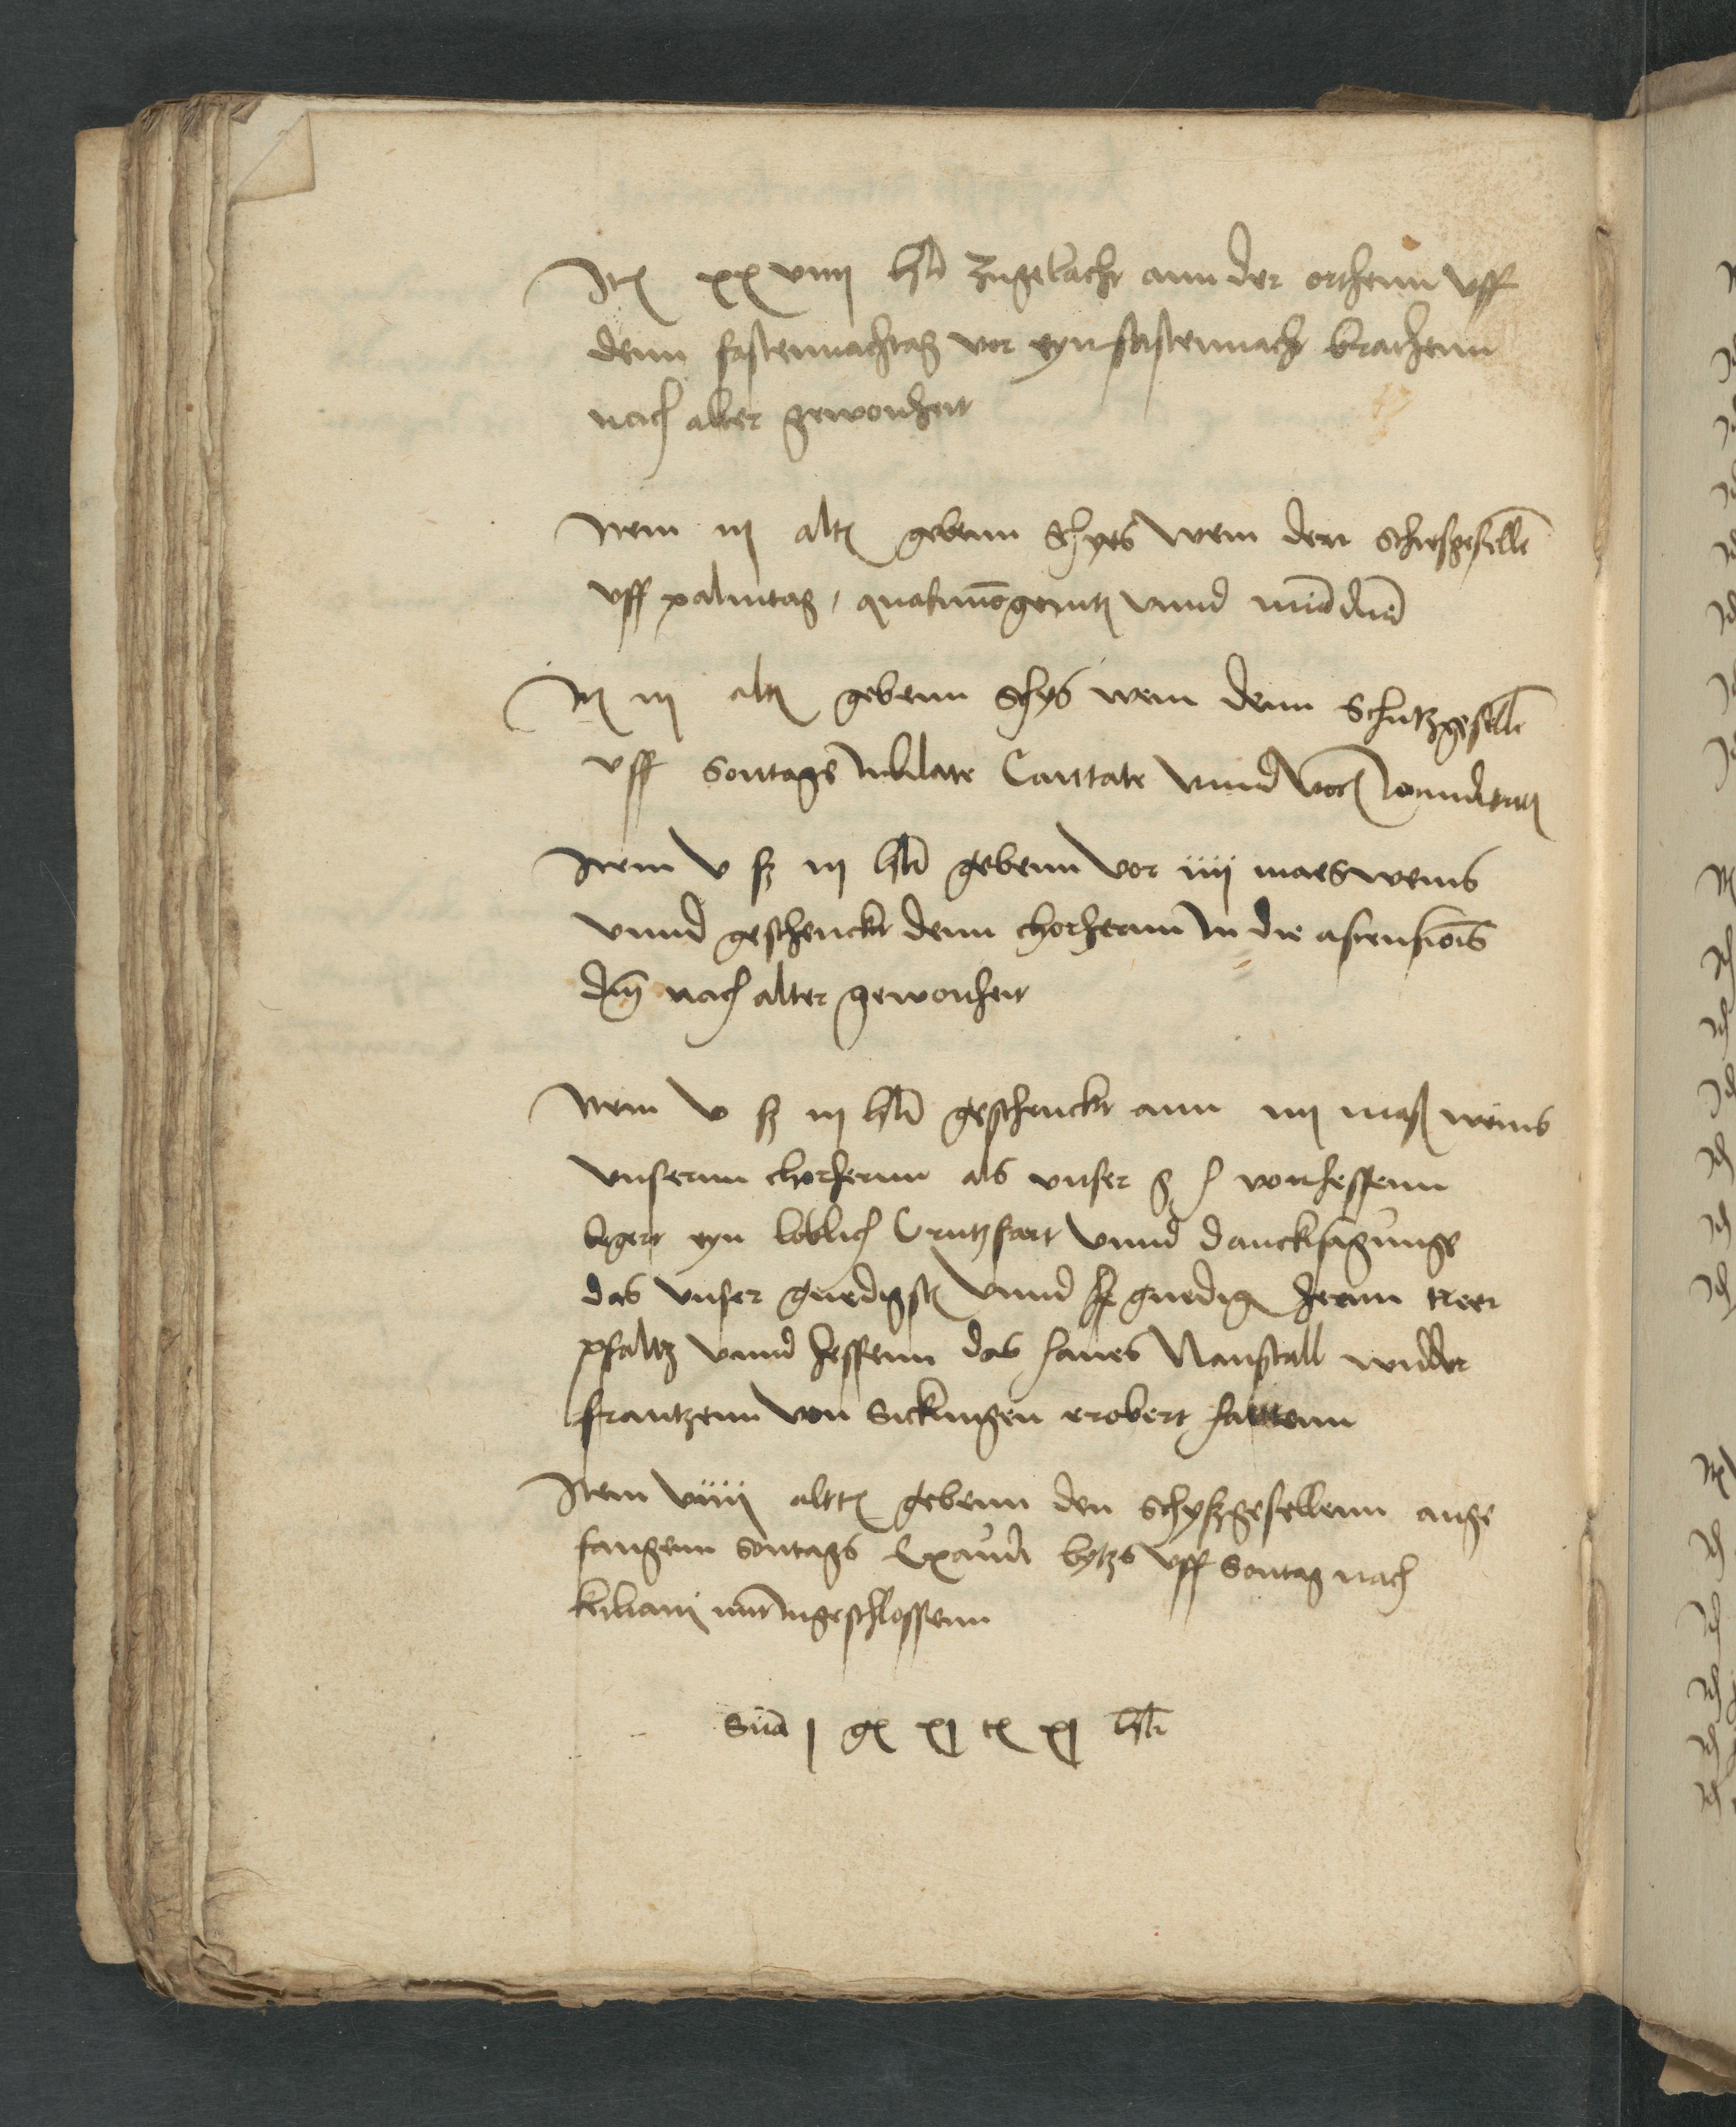 Itē xxviiij hlr zugelacht ann der orthenn vff
denn fastennachtag vor eyn fastennacht brathenn
nach alter gewonheit
Item iij altē gebenn schyes wein den schiesgeselle
vff palmtag, quasimōgenitj vnnd miādnī
Itē iij altē gebenn schys wein denn schutzgeselle
vff Sontags Jubilate Cantate vnnd Vocē Jocunditatis
Item v ß iij hlr gebenn vor iiij maes weins
vnnd geschenckt denn chorhernn In die ascensiōis
dnj nach alter gewonheit
Item v ß iij hlr geschenckt ann iiij maß weins
vnsernn chorhernn als vnser g h vonn hessenn
begert eyn loblich Crutzfart vnnd dancksagunge
das vnser gnedigste vnnd gnedig hernn trier
pfaltz vnnd hessenn das haues Nanstall widder
frantzenn von Sickingen erobert hattenn
Item viiij alttē gebenn den schyßgesellenn ange
fangenn Sontags Exaudi bytzs vff Sontag nach
kiliani mit Ingeschlossenn
Suā j gē xj tē xj hlr